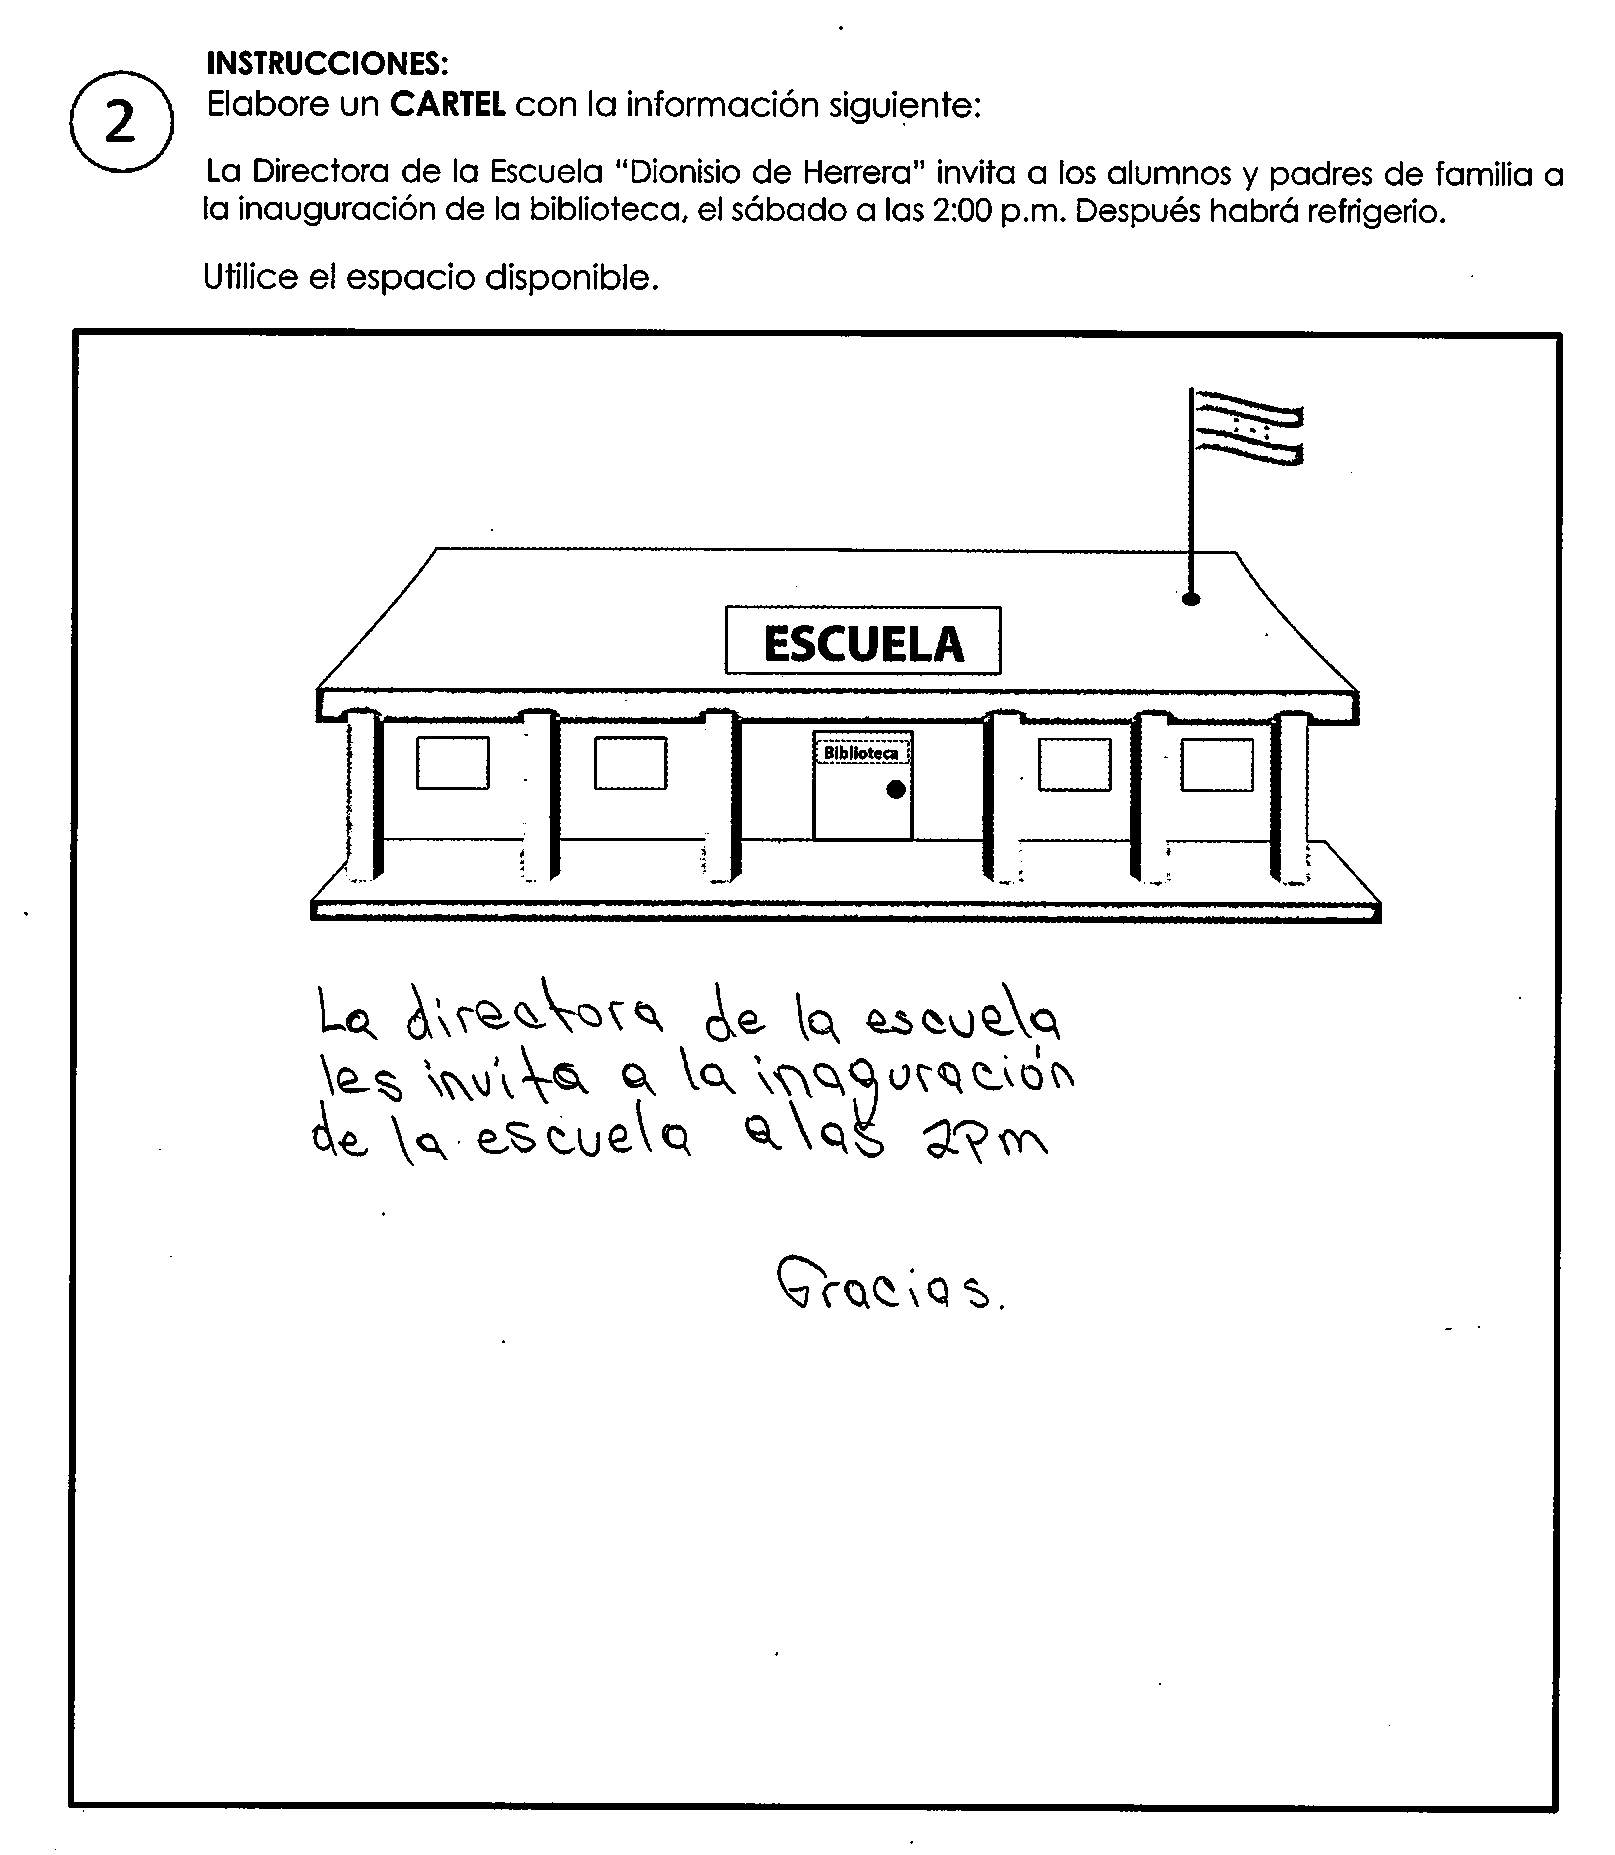 INSTRUCCIONES:
2
Elabore un CARTEL con la información siguiente:
La Directora de la Escuela "Dionisio de Herrera" invita a los alumnos y padres de familia a
la inauguración de la biblioteca, el sábado a las 2:00 p.m. Después habrá refrigerio.
Utilice el espacio disponible.
ESCUELA
Biblioteca
La directora de la escuela
les invita a la inaguración
de la escuela a las 2Pm
Gracias.